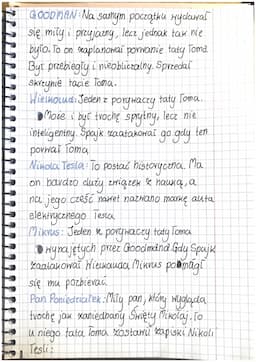 GOODMAN: Na samym początku wydawał
się miły i przyjazny, lecz jednak tak nie
było. To on zaplanował porwanie taty Toma.
Był przebiegły i nieobliczalny. Sprzedał
skrzynie tacie Toma.
Wielkolud: Jeden z porywaczy taty Toma.
Może i był trochę sprytny, lecz nie
inteligentny. Spajk zaatakował go gdy ten
porwał Toma
Nikola Tesla: To postać historyczna. Ma
on bardzo duży związek z nauką, a
na jego cześć nawet nazwano markę auta
elektrycznego Tesla
Mikrus: Jeden z porywaczy taty Toma
wynajętych przez Goodmana Gdy Spajk
zaatakował Wielkoluda, Mikrus pomógł
się mu pozbierać.
Pan Poniedziałek: Miły pan, który wygląda
trochę jak zaniedbany Święty Mikołaj. To
u niego tata Toma zostawił zapiski Nikoli
Tesli: